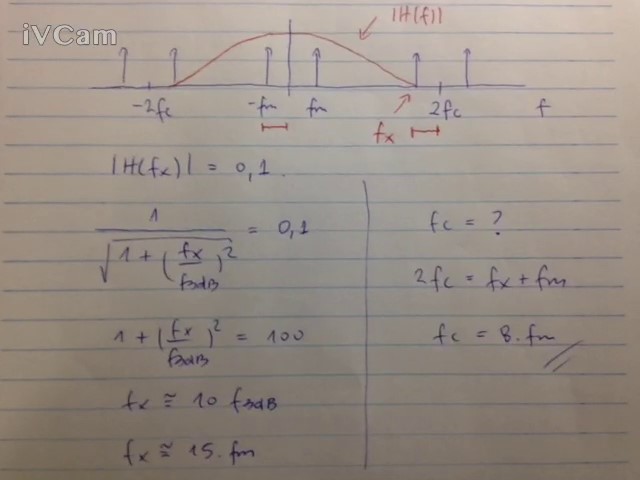 iVCam
|H(f)|
-2fc -fm fm fx 2fc f
|H(fx)| = 0,1.
1 / √(1 + (fx/f3dB)²) = 0,1
1 + (fx/f3dB)² = 100
fx ≅ 10 f3dB
fx ≅ 15. fm
fc = ?
2fc = fx + fm
fc = 8. fm